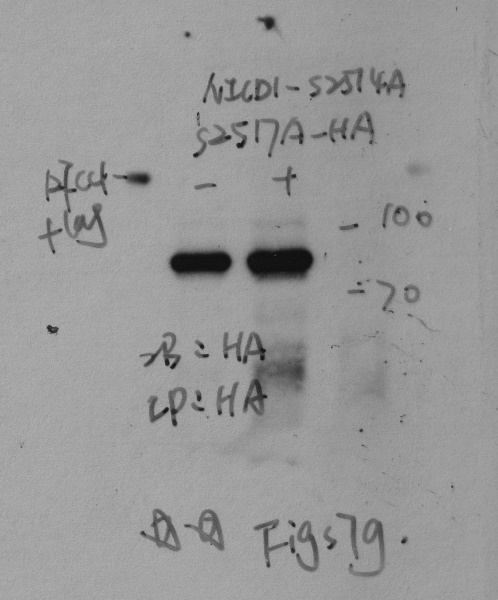 NICD1-S2514A
S2517A-HA
- +
- 100
- 70
IB: HA
IP: HA
Figs7g.